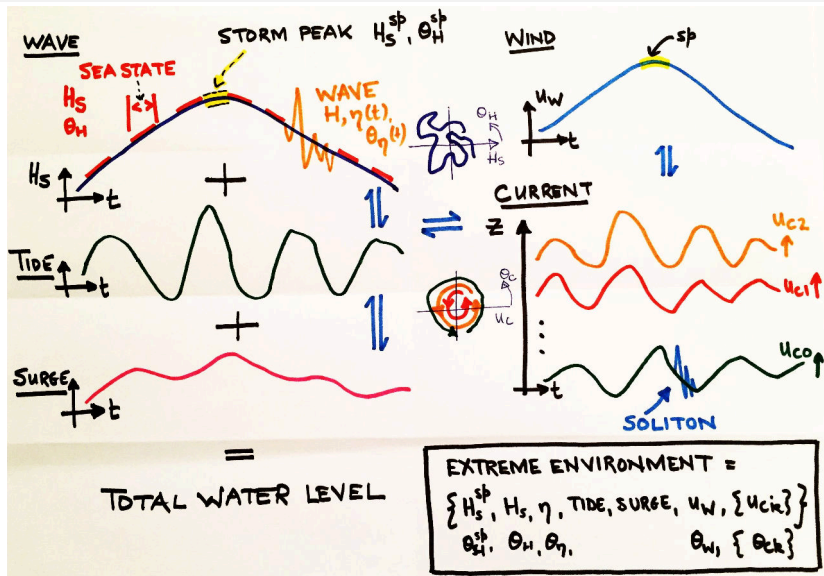 WAVE
STORM PEAK H_S^sp, θ_H^sp
SEA STATE
H_S
θ_H
WAVE
H, η(t),
θ_η(t)
H_S
t
+
TIDE
t
+
SURGE
t
=
TOTAL WATER LEVEL
θ_H
H_S
θ_C
u_C
WIND
sp
u_W
t
CURRENT
Z
u_C2
u_C1
u_C0
t
SOLITON
EXTREME ENVIRONMENT =
{H_S^sp, H_S, η, TIDE, SURGE, u_W, {u_Ck}}
θ_H^sp, θ_H, θ_η, θ_W, {θ_Ck}